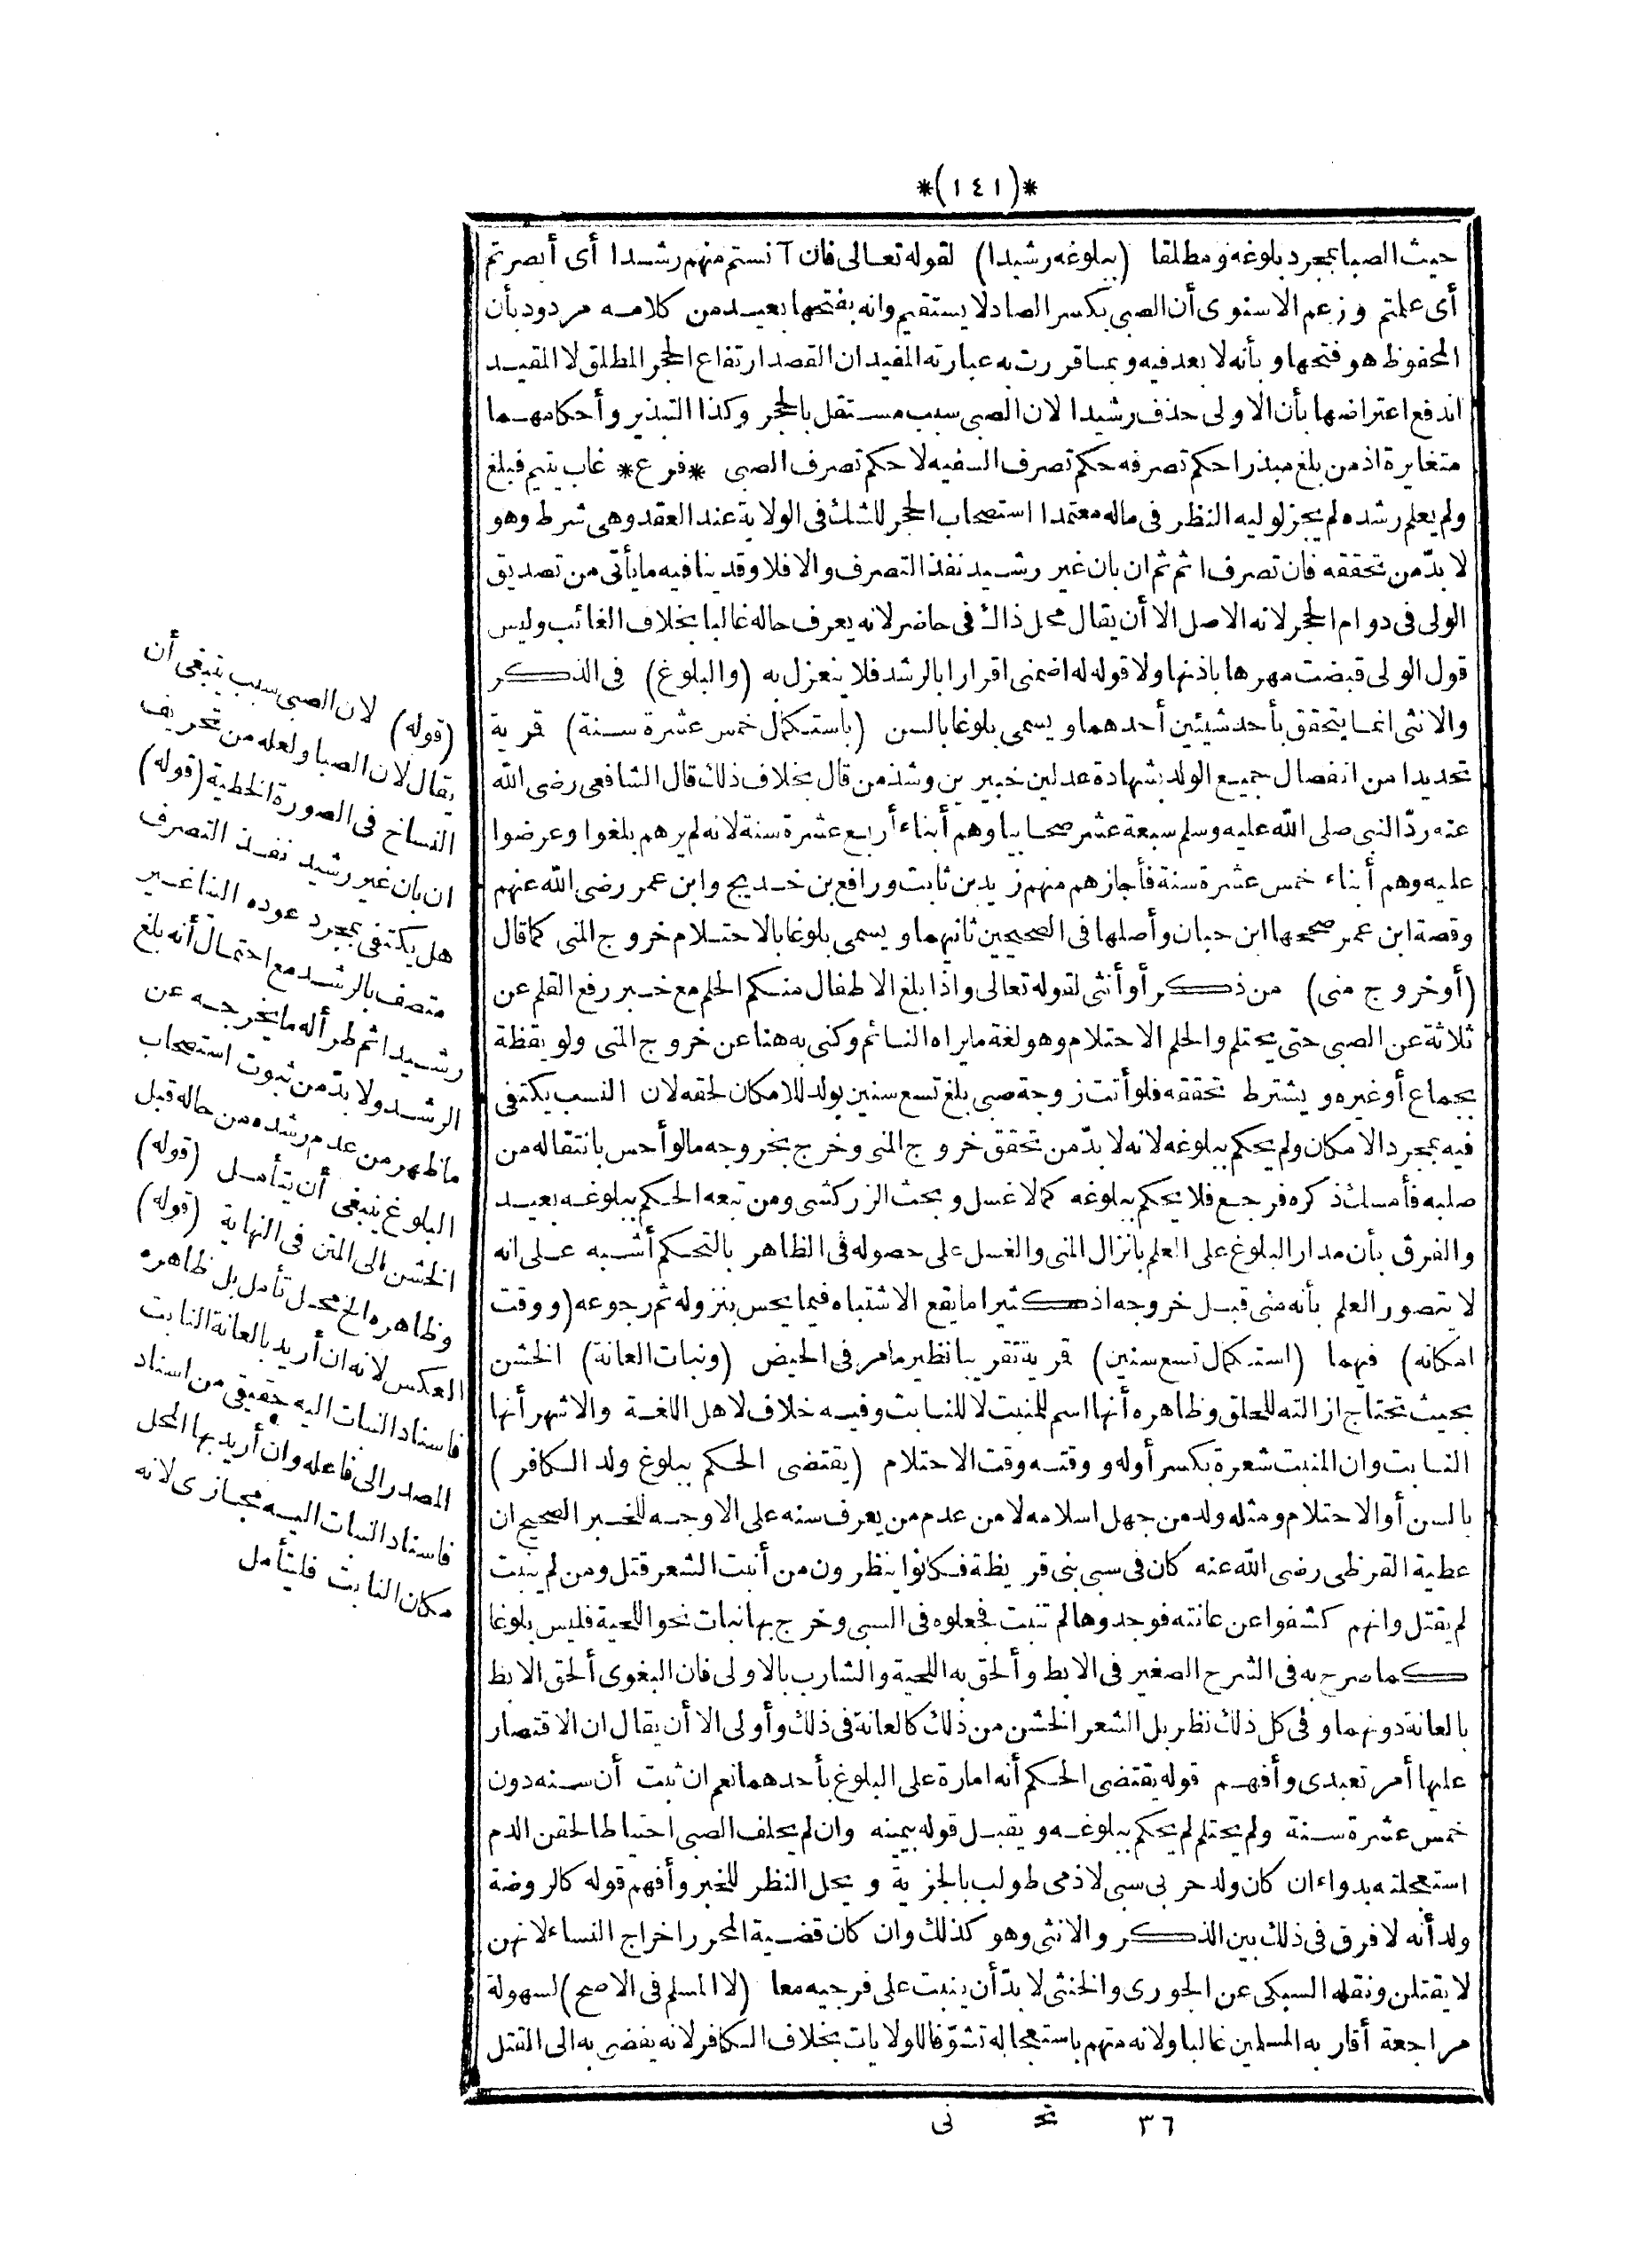 *(١٤١)*
حيث الصبا بمجرد بلوغه ومطلقا (ببلوغه رشيدا) لقوله تعالى فان آنستم منهم رشدا أى أبصرتم
أى علمتم وزعم الاسنوى أن الصبى بكسر الصاد لا يستقيم وانه بفتحها بعيد من كلامه مردود بأن
المحفوظ هو فتحها وبأنه لا بعد فيه وبما قررت به عبارته المفيد ان القصد ارتفاع الحجر المطلق لا المقيد
اندفع اعتراضها بأن الاولى حذف رشيدا لان الصبى سبب مستقل بالحجر وكذا التبذير وأحكامهما
متغايرة اذ من بلغ مبذرا حكم تصرفه حكم تصرف السفيه لا حكم تصرف الصبى *فرع* غاب يتيم فبلغ
ولم يعلم رشده لم يجز لوليه النظر فى ماله معتمدا استصحاب الحجر للشك فى الولاية عند العقد وهى شرط وهو
لا بدّ من تحققه فان تصرف اثم ثم ان بان غير رشيد نفذ التصرف والا فلا وقد ينافيه ما يأتى من تصديق
الولى فى دوام الحجر لانه الاصل الا أن يقال محل ذاك فى حاضر لانه يعرف حاله غالبا بخلاف الغائب وليس
قول الولى قبضت مهرها باذنها ولا قوله له اضمنى اقرارا بالرشد فلا ينعزل به (والبلوغ) فى الذكر
والانثى انما يتحقق بأحد شيئين أحدهما ويسمى بلوغا بالسن (باستكمال خمس عشرة سنة) قمرية
تحديدا من انفصال جميع الولد بشهادة عدلين خبيرين وشذ من قال بخلاف ذلك قال الشافعى رضى الله
عنه ردّ النبى صلى الله عليه وسلم سبعة عشر صحابيا وهم أبناء أربع عشرة سنة لانه لم يرهم بلغوا وعرضوا
عليه وهم أبناء خمس عشرة سنة فأجازهم منهم زيد بن ثابت ورافع بن خديج وابن عمر رضى الله عنهم
وقصة ابن عمر صححها ابن حبان وأصلها فى الصحيحين ثانيهما ويسمى بلوغا بالاحتلام خروج المنى كما قال
(أو خروج منى) من ذكر أو أنثى لقوله تعالى واذا بلغ الاطفال منكم الحلم مع خبر رفع القلم عن
ثلاثة عن الصبى حتى يحتلم والحلم الاحتلام وهو لغة ما يراه النائم وكنى به هنا عن خروج المنى ولو يقظة
بجماع أو غيره ويشترط تحققه فلو أتت زوجة صبى بلغ تسع سنين بولد للامكان لحقه لان النسب يكتفى
فيه بمجرد الامكان ولم يحكم ببلوغه لانه لا بدّ من تحقق خروج المنى وخرج بخروجه ما لو أحس بانتقاله من
صلبه فأمسك ذكره فرجع فلا يحكم ببلوغه كما لا غسل وبحث الزركشى ومن تبعه الحكم ببلوغه بعيد
والفرق بأن مدار البلوغ على العلم بانزال المنى والغسل على حصوله فى الظاهر بالتحكم أشبه على انه
لا يتصور العلم بأنه منى قبل خروجه اذ كثيرا ما يقع الاشتباه فيما يحس بنزوله ثم رجوعه (ووقت
امكانه) فيهما (استكمال تسع سنين) قمرية تقريبا نظير ما مر فى الحيض (ونبات العانة) الخشن
بحيث تحتاج ازالته للحلق وظاهره أنها اسم للمنبت لا للنابت وفيه خلاف لاهل اللغة والاشهر أنها
النابت وان المنبت شعرة بكسر أوله ووقته وقت الاحتلام (يقتضى الحكم ببلوغ ولد الكافر)
بالسن أو الاحتلام ومثله ولد من جهل اسلامه لا من عدم من يعرف سنه على الاوجه للخبر الصحيح ان
عطية القرظى رضى الله عنه كان فى سبى بنى قريظة فكانوا ينظرون من أنبت الشعر قتل ومن لم ينبت
لم يقتل وانهم كشفوا عن عانته فوجدوها لم تنبت فجعلوه فى السبى وخرج بها نبات نحو اللحية فليس بلوغا
كما صرح به فى الشرح الصغير فى الابط وألحق به اللحية والشارب بالاولى فان البغوى ألحق الابط
بالعانة دونهما وفى كل ذلك نظر بل الشعر الخشن من ذلك كالعانة فى ذلك وأولى الا أن يقال ان الاقتصار
عليها أمر تعبدى وأفهم قوله يقتضى الحكم أنه امارة على البلوغ بأحدهما نعم ان ثبت أن سنه دون
خمس عشرة سنة ولم يحتلم لم يحكم ببلوغه ويقبل قوله بيمينه وان لم يحلف الصبى احتياطا لحقن الدم
استعجلته بدواء ان كان ولد حربى سبى لا ذمى طولب بالجزية ويحل النظر للخبر وأفهم قوله كالروضة
ولد أنه لا فرق فى ذلك بين الذكر والانثى وهو كذلك وان كان قضية المحرر اخراج النساء لانهن
لا يقتلن ونقله السبكى عن الجورى والخنثى لا بدّ أن ينبت على فرجيه معا (لا المسلم فى الاصح) لسهولة
مراجعة أقاربه المسلمين غالبا ولانه متهم باستعجاله تشوّفا للولايات بخلاف الكافر لانه يفضى به الى القتل
(قوله) لان الصبى سبب ينبغى أن
يقال لان الصبا ولعله من تحريف
النساخ فى الصورة الخطية (قوله)
ان بان غير رشيد نفذ التصرف
هل يكتفى بمجرد عوده الينا غير
متصف بالرشد مع احتمال أنه بلغ
رشيدا ثم طرأ له ما يخرجه عن
الرشد ولا بدّ من ثبوت استصحاب
ما ظهر من عدم رشده من حاله قبل
البلوغ ينبغى أن يتأمل (قوله)
الخشن الى المتن فى النهاية (قوله)
وظاهره الخ محل تأمل بل ظاهره
العكس لانه ان أريد بالعانة النابت
فاسناد النبات اليه حقيقى من اسناد
المصدر الى فاعله وان أريد بها المحل
فاسناد النبات اليه مجازى لانه
مكان النابت فليتأمل
٣٦ تح نى